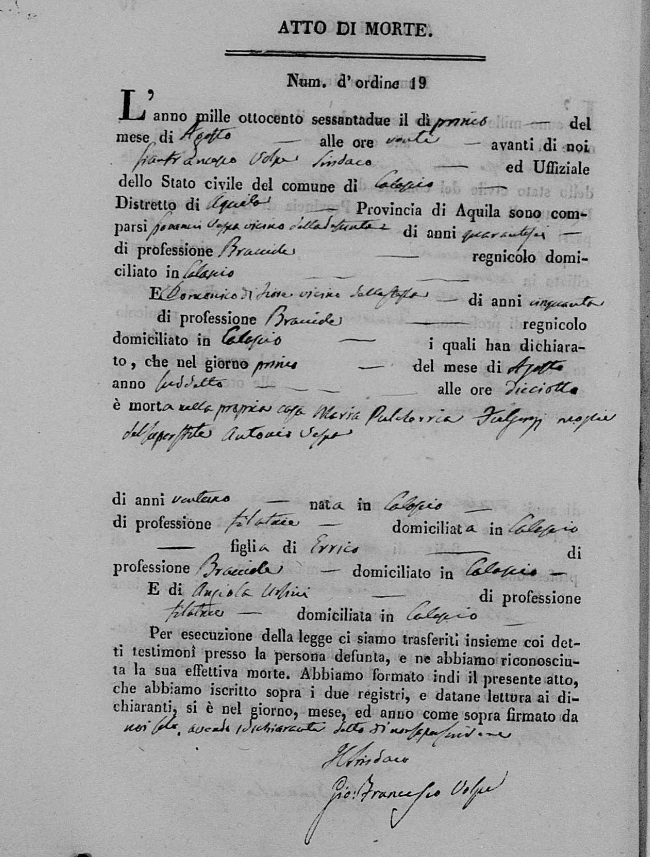 ATTO DI MORTE.
Num. d'ordine 19
L'anno mille ottocento sessantadue il dì primo — del
mese di Agosto — alle ore venti — avanti di noi
Volpe Sindaco — ed Uffiziale
dello Stato civile del comune di Calascio —
Distretto di Aquila — Provincia di Aquila sono com-
parsi vicino della defunta di anni —
di professione Bracciale — regnicolo domi-
ciliato in Calascio — — —
E Domenico di Fiore vicino della stessa — di anni cinquanta
di professione Bracciale — regnicolo
domiciliato in Calascio — i quali han dichiara-
to, che nel giorno primo — del mese di Agosto
anno suddetto — — — alle ore diciotto
è morta nella propria casa Maria Pulcherria moglie
del superstite Antonio
di anni ventuno — nata in Calascio —
di professione filatrice — domiciliata in Calascio
— figlia di Errico — di
professione Bracciale — domiciliato in Calascio —
E di Angiola Ursini — di professione
filatrice — domiciliata in Calascio —
Per esecuzione della legge ci siamo trasferiti insieme coi det-
ti testimonî presso la persona defunta, e ne abbiamo riconosciu-
ta la sua effettiva morte. Abbiamo formato indi il presente atto,
che abbiamo iscritto sopra i due registri, e datane lettura ai di-
chiaranti, si è nel giorno, mese, ed anno come sopra firmato da
noi solo, avendo i dichiaranti detto di non saper scrivere
Il Sindaco
Gio: Francesco Volpe